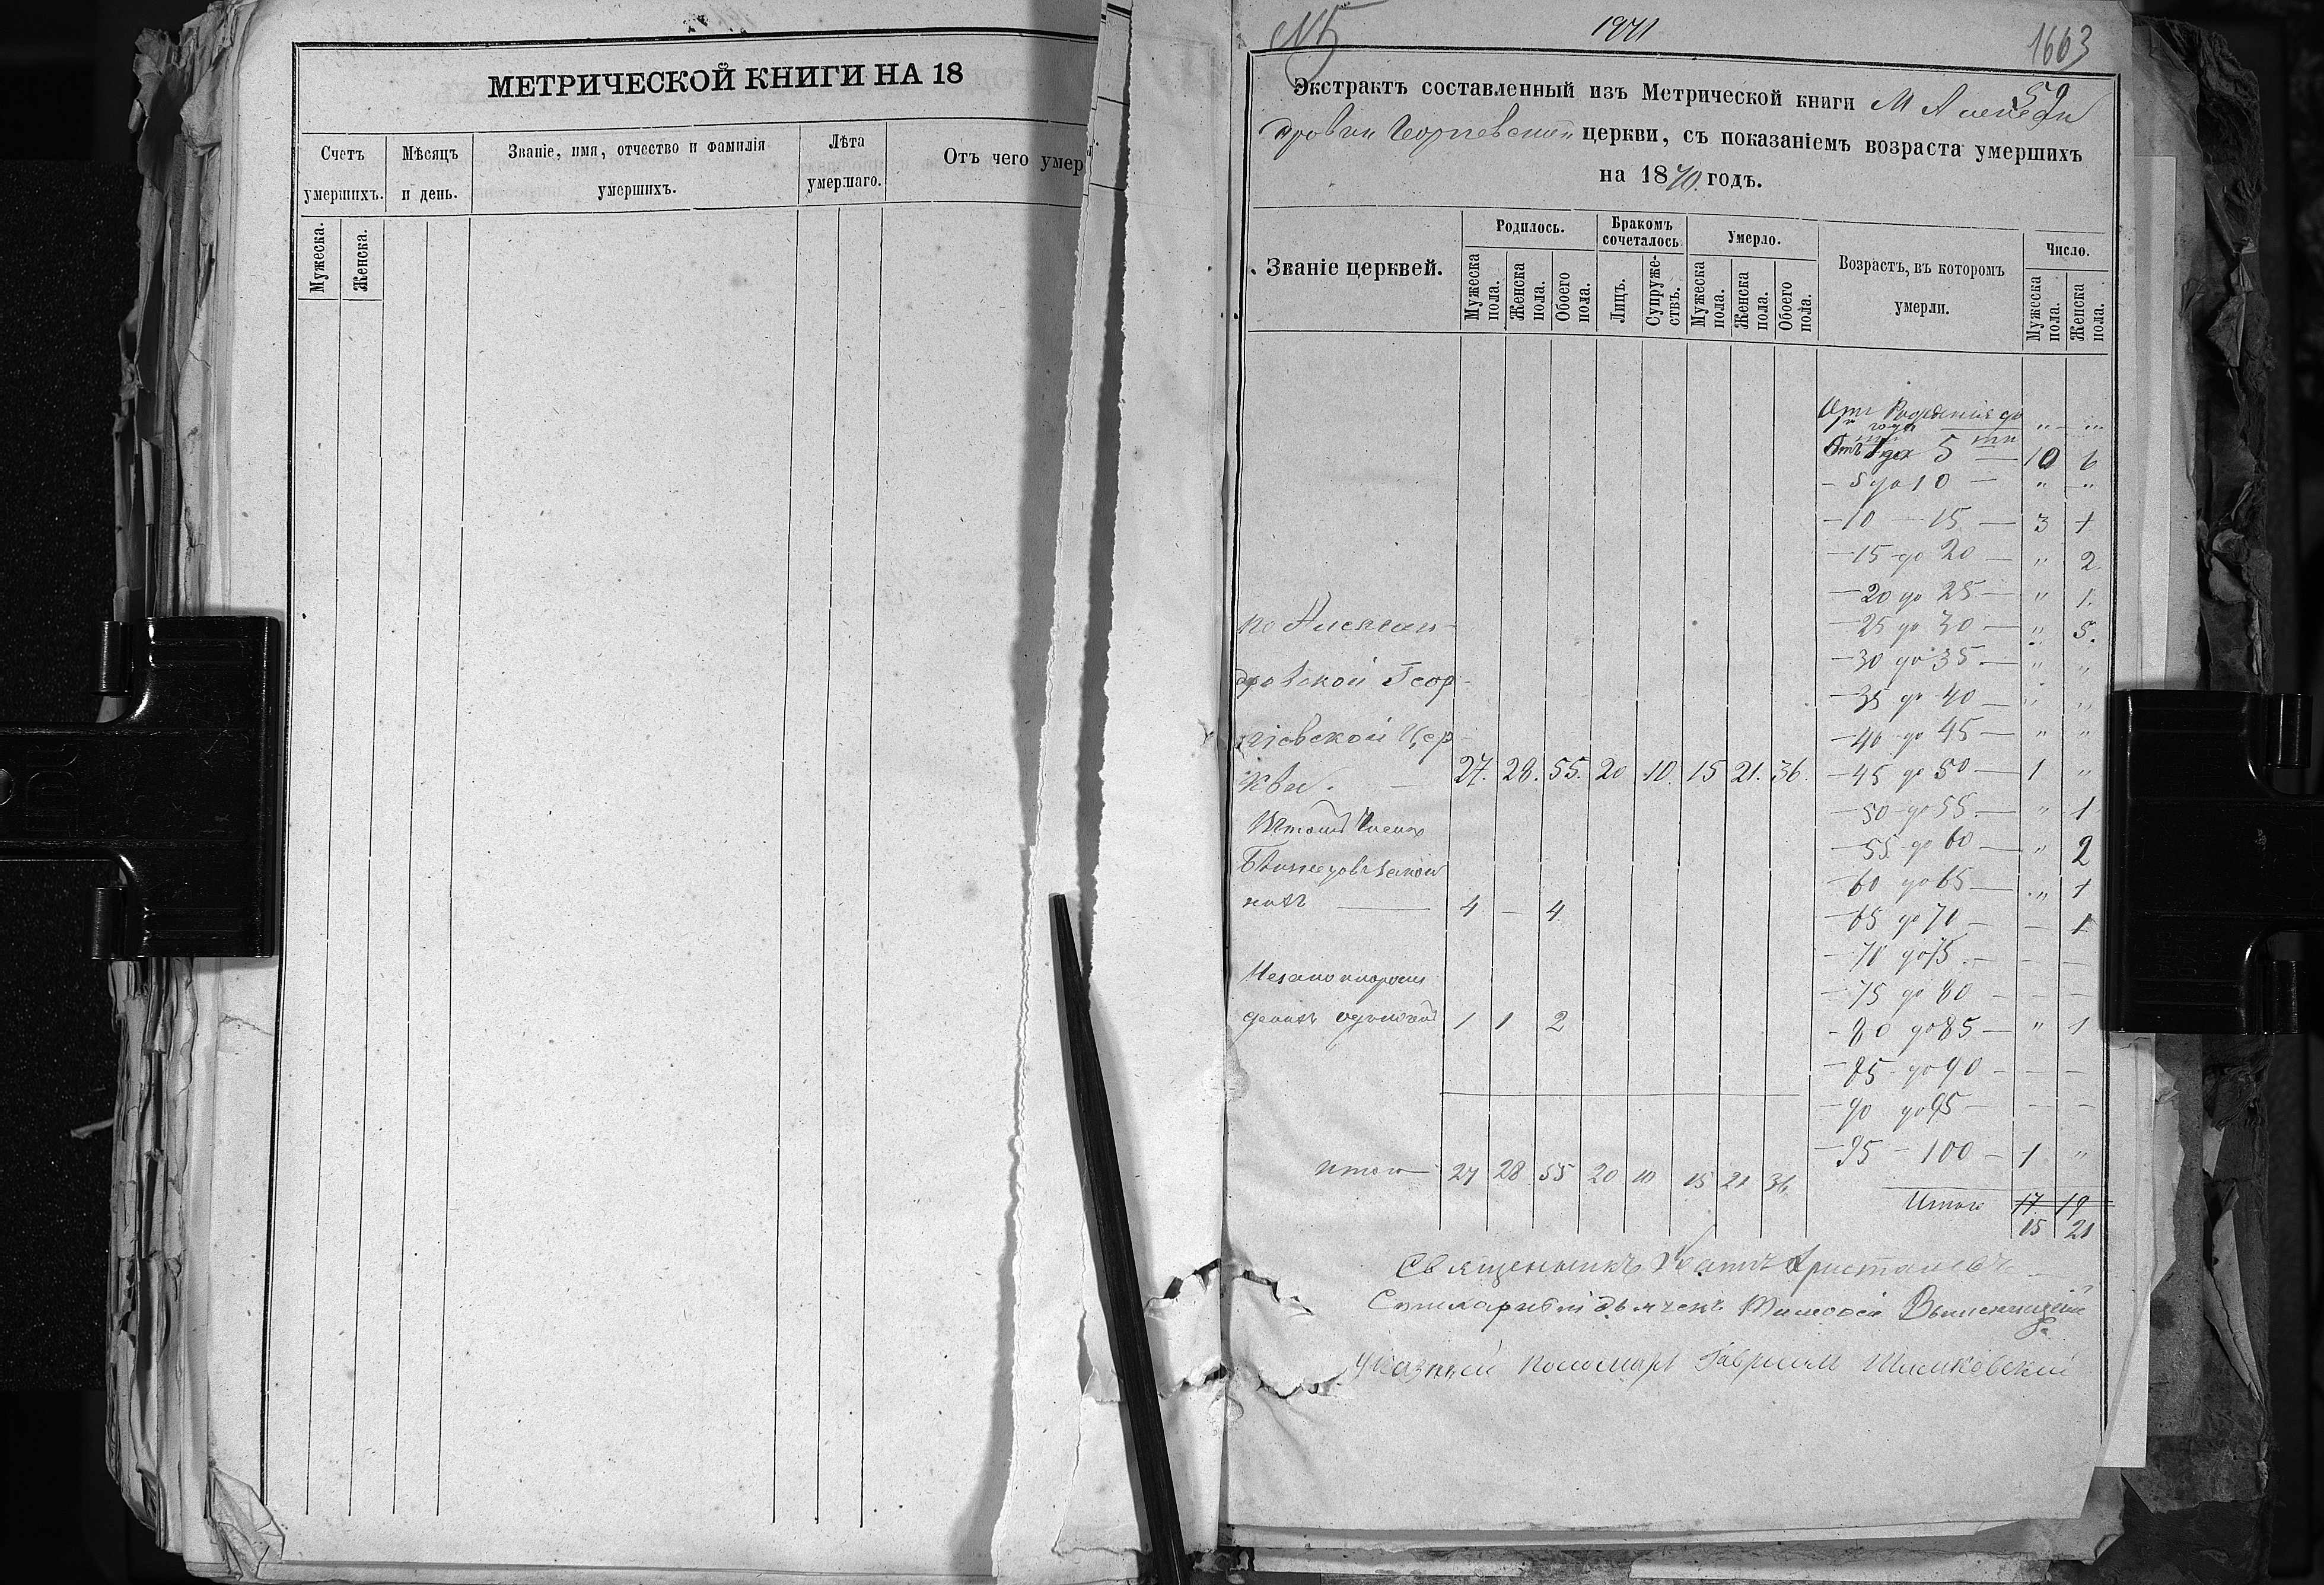 МЕТРИЧЕСКОЙ КНИГИ НА 18
Счетъ умершихъ.
Мѣсяцъ и день.
Званіе, имя, отчество и фамилія умершихъ.
Лѣта умершаго.
Отъ чего умер
Мужеска.
Женска.
№5
1871
1663
59
Экстрактъ составленный изъ Метрической книги М Александровки Георгіевской церкви, съ показаніемъ возраста умершихъ
на 1870. годъ.
Званіе церквей.
Родилось.
Бракомъ сочеталось.
Умерло.
Возрастъ, въ которомъ умерли.
Число.
Мужеска пола.
Женска пола.
Обоего пола.
Лицъ.
Супружествъ.
Мужеска пола.
Женска пола.
Обоего пола.
Мужеска пола.
Женска пола.
Отъ Рожденія до
1го года „ „
Отъ 5 10 6
– 5 до 10 – „ „
– 10 – 15 – 3 1
– 15 до 20 – „ 2
– 20 до 25 – „ 1.
– 25 до 30 – „ 5.
– 30 до 35 – „ „
– 35 до 40 – „ „
– 40 до 45 – „ „
– 45 до 50 – 1 „
– 50 до 55 – „ 1
– 55 до 60 – „ 2
– 60 до 65 – „ 1
– 65 до 70 – – 1
– 70 до 75 – – –
– 75 до 80 – – –
– 80 до 85 – „ 1
– 85 до 90 – – –
– 90 до 95 – – –
– 95 – 100 – 1 „
Итого 17 19
15 21
по Алексан-
дровской Геор-
гіевской Цер-
кви. 27. 28. 55. 20 10. 15 21. 36.
Втомъ числѣ
4 – 4
1 1 2
Итого 27 28 55 20 10 15 21 36
Священникъ
дьячекъ
Указный пономарь Гавріилъ